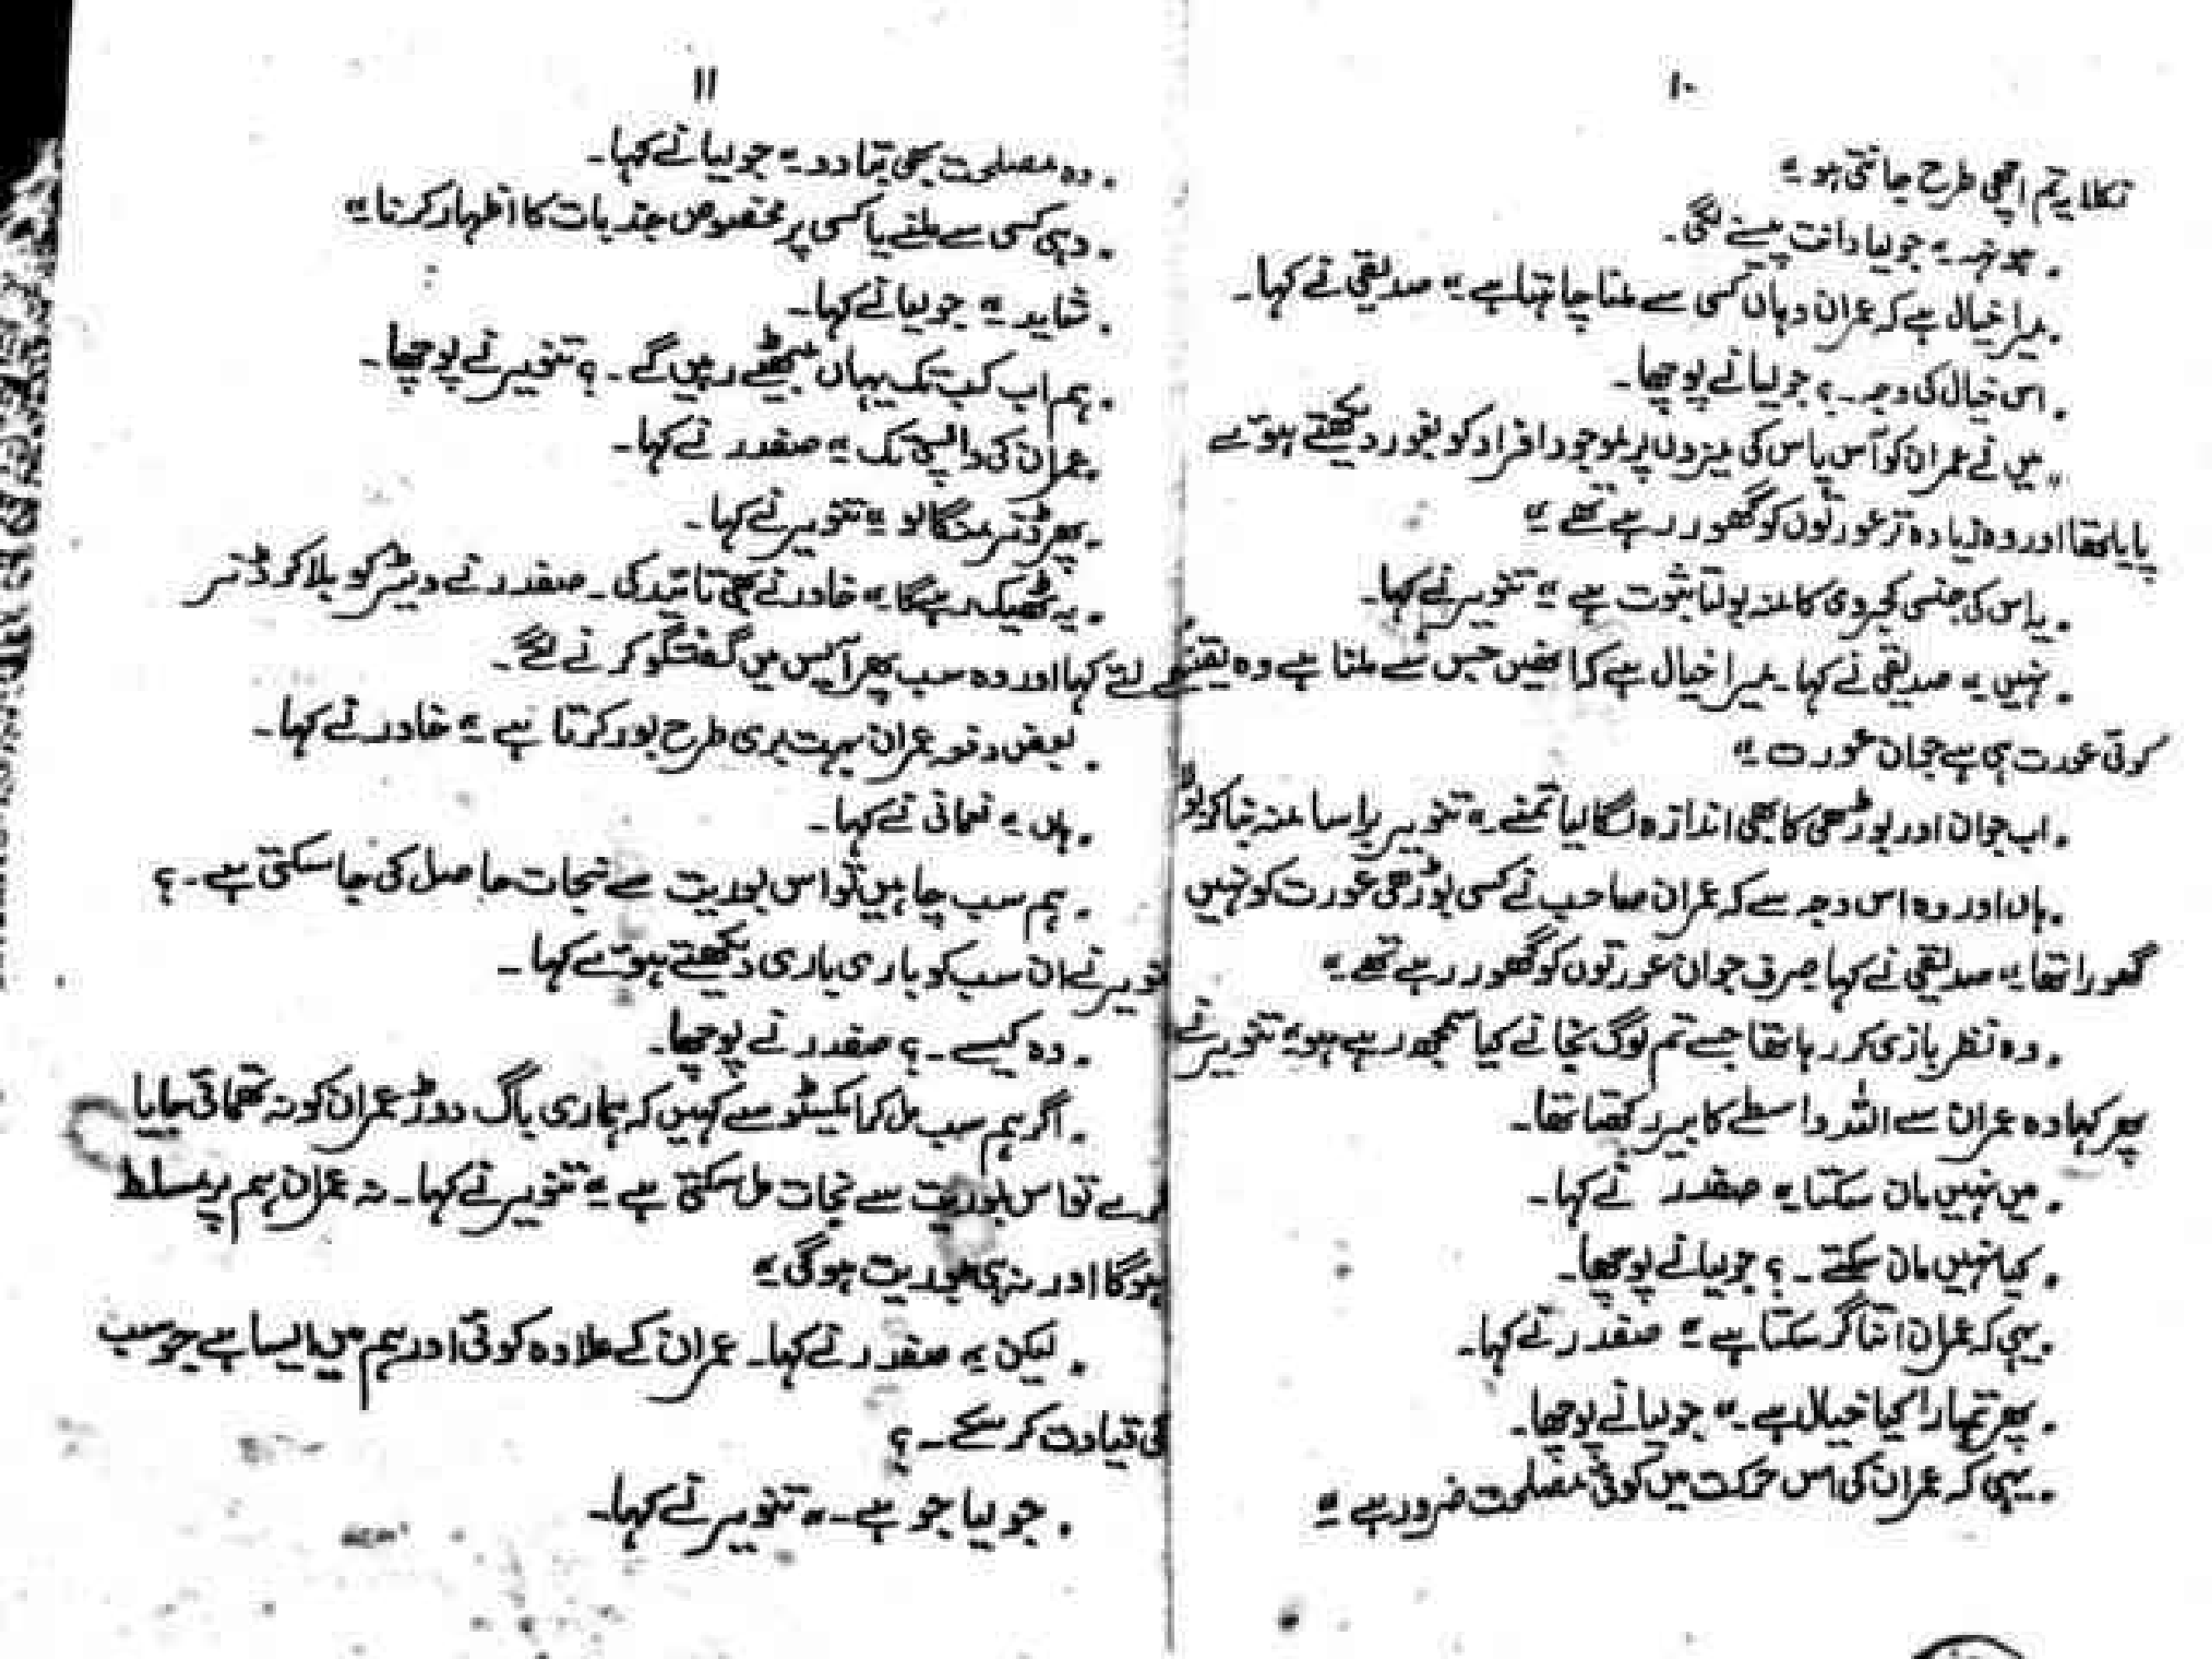 ۱۰
نکلا یہ تم اچھی طرح جانتی ہو"
"ہونہہ" جولیا دانت پیسنے لگی۔
"میرا خیال ہے کہ عمران وہاں کسی سے ملنا چاہتا ہے" صدیقی نے کہا۔
"اس خیال کی وجہ۔؟ جولیا نے پوچھا۔
"میں نے عمران کو آس پاس کی میزوں پر موجود افراد کو بغور دیکھتے ہوئے
پایا تھا اور وہ زیادہ تر عورتوں کو گھور رہے تھے"
"یہ اس کی جنسی کجروی کا منہ بولتا ثبوت ہے" تنویر نے کہا۔
"نہیں" صدیقی نے کہا۔ میرا خیال ہے کہ انھیں جس سے ملنا ہے وہ یقینی
کوئی عورت ہی ہے جوان عورت"
"اب جوان اور بوڑھی کا بھی اندازہ لگا لیا تم نے" تنویر برا سا منہ بنا کر بولا
"ہاں اور وہ اس وجہ سے کہ عمران صاحب نے کسی بوڑھی عورت کو نہیں
گھورا تھا" صدیقی نے کہا صرف جوان عورتوں کو گھور رہے تھے"
"وہ نظر بازی کر رہا تھا جسے تم لوگ نجانے کیا سمجھ رہے ہو" تنویر نے
پھر کہا وہ عمران سے اللہ واسطے کا بیر رکھتا تھا۔
"میں نہیں مان سکتا" صفدر نے کہا۔
"کیا نہیں مان سکتے۔؟ جولیا نے پوچھا۔
"یہی کہ عمران اتنا گر سکتا ہے" صفدر نے کہا۔
"پھر تمہارا کیا خیال ہے۔" جولیا نے پوچھا۔
"یہی کہ عمران کی اس حرکت میں کوئی مصلحت ضرور ہے"
۱۱
"وہ مصلحت بھی بتا دو" جولیا نے کہا۔
"وہی کسی سے ملنے یا کسی پر مخصوص جذبات کا اظہار کرنا"
"شاید" جولیا نے کہا۔
"ہم اب کب تک یہاں بیٹھے رہیں گے۔؟ تنویر نے پوچھا۔
"عمران کی واپسی تک" صفدر نے کہا۔
"پھر ڈنر منگا لو" تنویر نے کہا۔
"یہ ٹھیک رہے گا" خاور نے بھی تائید کی۔ صفدر نے ویٹر کو بلا کر ڈنر
کے لئے کہا اور وہ سب پھر آپس میں گفتگو کرنے لگے۔
"بعض دفعہ عمران بہت بری طرح بور کرتا ہے" خاور نے کہا۔
"ہاں" نعمانی نے کہا۔
"ہم سب چاہیں تو اس بوریت سے نجات حاصل کی جا سکتی ہے۔؟
تنویر نے ان سب کو باری باری دیکھتے ہوئے کہا۔
"وہ کیسے۔؟ صفدر نے پوچھا۔
"اگر ہم سب مل کر ایکسٹو سے کہیں کہ ہماری باگ دوڑ عمران کو نہ تھمائی جایا
کرے تو اس بوریت سے نجات مل سکتی ہے" تنویر نے کہا۔ نہ عمران ہم پر مسلط
ہوگا اور نہ ہی بوریت ہوگی"
"لیکن" صفدر نے کہا۔ عمران کے علاوہ کوئی اور ہم میں ایسا ہے جو سب
کی قیادت کر سکے۔؟
"جولیا جو ہے۔" تنویر نے کہا۔